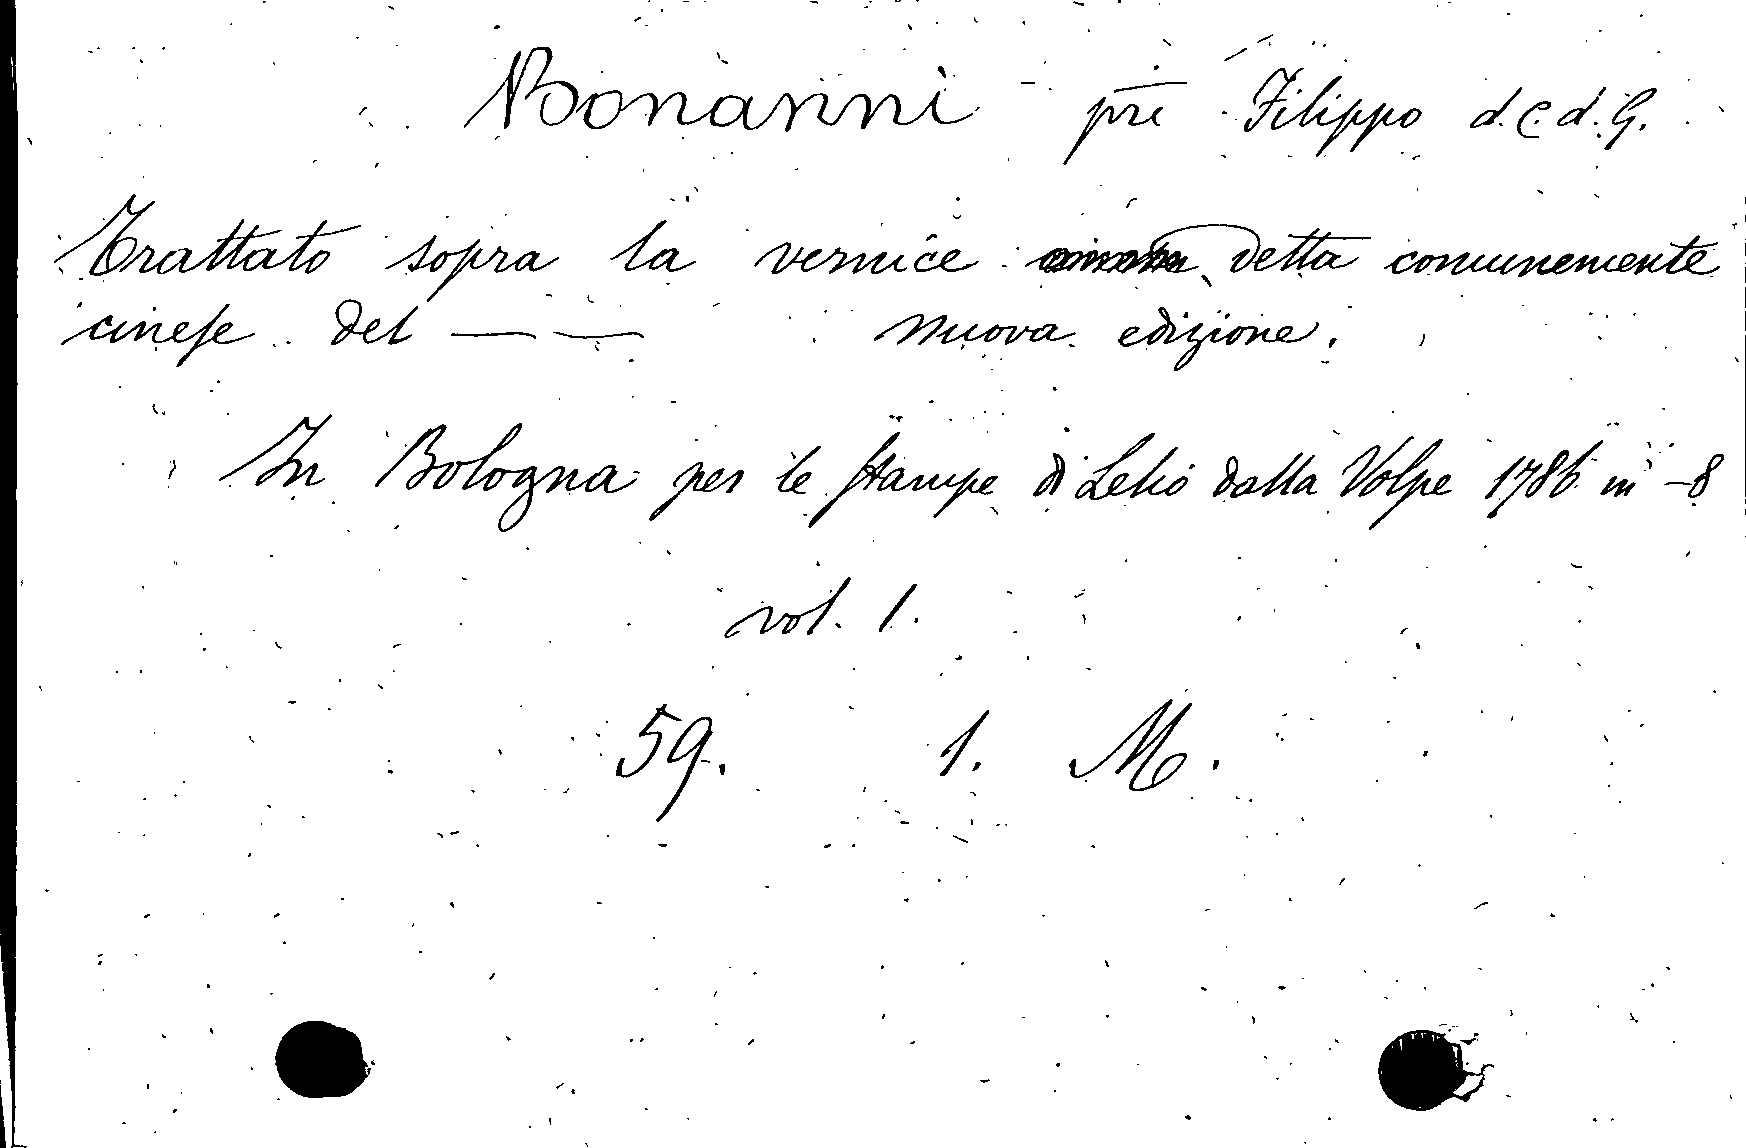 Bonanni - pre Filippo d. C. d. G.
Trattato sopra la vernice detta comunemente
cinese del — — nuova edizione.
In Bologna per le stampe di Lelio dalla Volpe 1786 in -8
vol. 1.
59. 1. M.